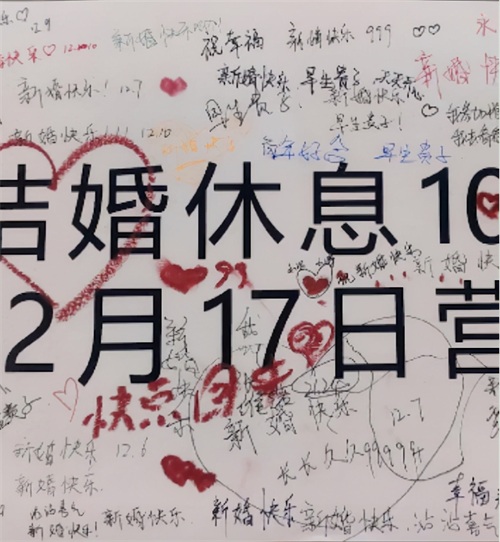 乐♡
12.9
新婚快乐啊!
祝幸福
新婚快乐 999
永
快乐♡ 12.10
新婚快乐!
12.7
新婚快乐
早生贵子
天天
新婚
早生贵子
新婚快乐!
早生贵子!
新婚快乐!!!
12.10
新婚快乐
百年好合
早生贵子
结婚休息10
99
祝新婚快乐
新婚快
2月17日营
快点回来
新婚
快乐
12.7
新婚快乐
12.6
长长久久9999年
新婚快乐
沾沾喜气
新婚快乐!
新婚快乐
新婚快乐
新婚快乐
沾沾喜气
幸福